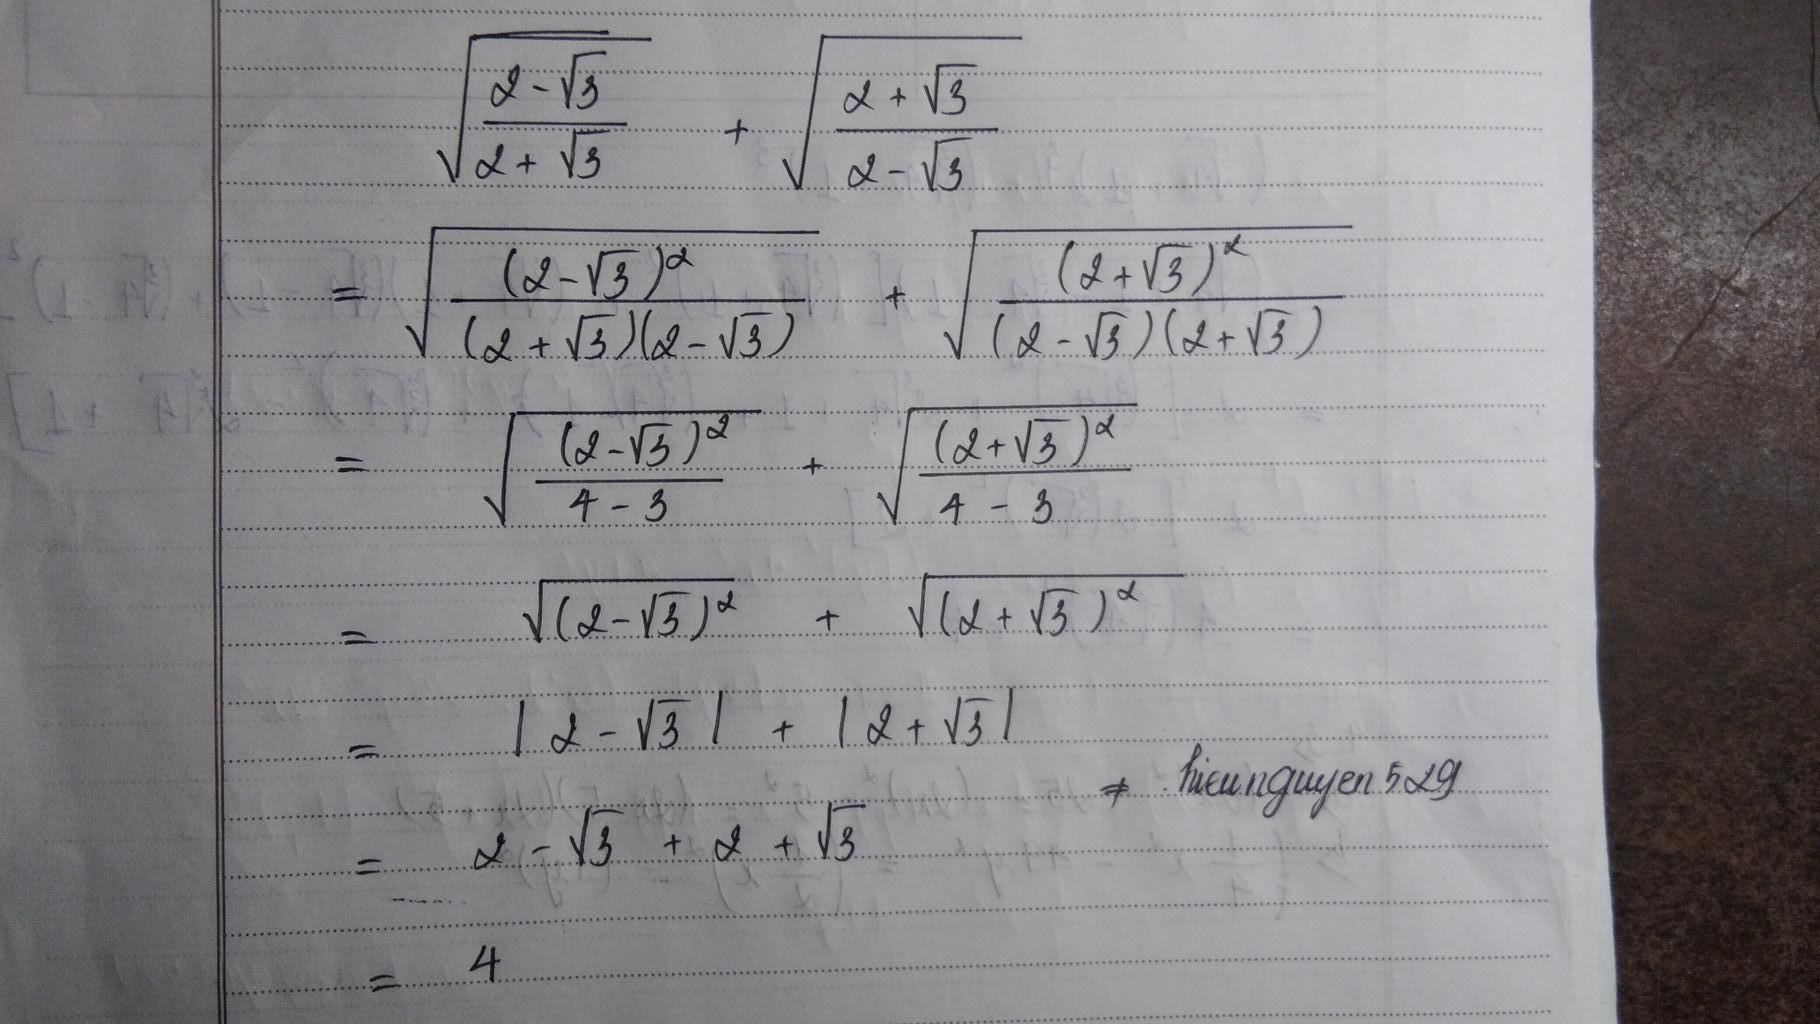 √((2 - √3)/(2 + √3)) + √((2 + √3)/(2 - √3))
= √((2 - √3)²/((2 + √3)(2 - √3))) + √((2 + √3)²/((2 - √3)(2 + √3)))
= √((2 - √3)²/(4 - 3)) + √((2 + √3)²/(4 - 3))
= √((2 - √3)²) + √((2 + √3)²)
= |2 - √3| + |2 + √3|
hieunguyen529
= 2 - √3 + 2 + √3
= 4